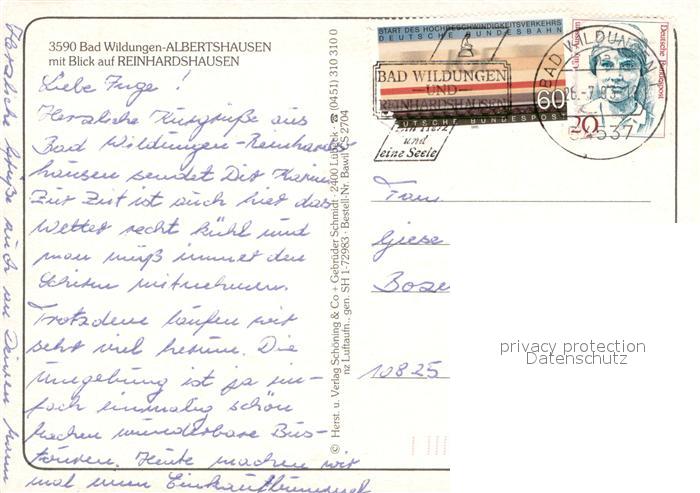 3590 Bad Wildungen-ALBERTSHAUSEN
mit Blick auf REINHARDSHAUSEN
Liebe Inge!
Herzliche Kurgrüße aus
Bad Wildungen-Reinhards-
hausen sendet Dir Karin
Zur Zeit ist auch hier das
Wetter recht kühl und
man muß immer den
Schirm mitnehmen.
Trotzdem laufen wir
sehr viel herum. Die
Umgebung ist ja ein-
fach einmalig schön
machen wunderbare Bus-
touren. Heute machen wir
mal einen Einkaufbummel
Herzliche Grüße auch an Deinen Mann
© Herst. u. Verlag Schöning & Co + Gebrüder Schmidt · 2400 Lübeck · ☎ (0451) 310 310 0
nz Luftaufn., gen. SH 1-72983 · Bestell-Nr. Bawil VS 2704
START DES HOCHGESCHWINDIGKEITSVERKEHRS
DEUTSCHE BUNDESBAHN
60
DEUTSCHE BUNDESPOST
BAD WILDUNGEN
UND
REINHARDSHAUSEN
ein Herz
und
eine Seele
BAD WILDUNGEN 1
34537
Deutsche Bundespost
20
Frau
Giese
Bose
10825
privacy protection
Datenschutz